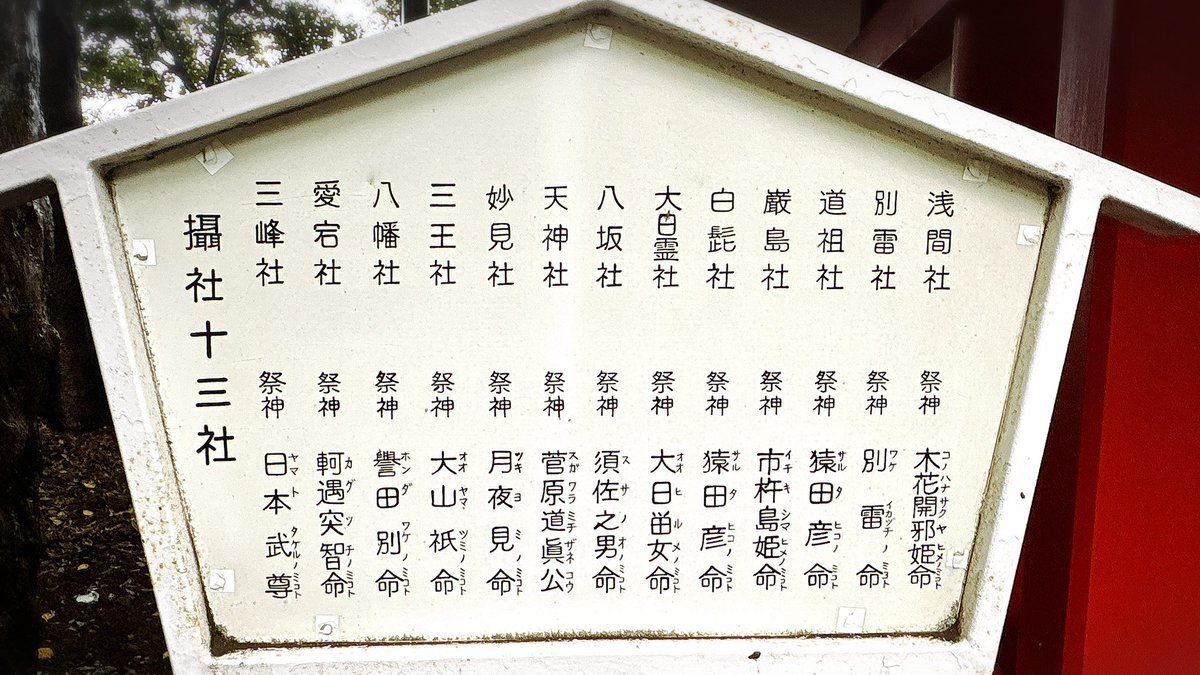 浅間社 祭神 木花開邪姫命
コノハナサクヤヒメノミコト
別雷社 祭神 別雷命
ワケイカヅチノミコト
道祖社 祭神 猿田彦命
サルタヒコノミコト
厳島社 祭神 市杵島姫命
イチキシマヒメノミコト
白髭社 祭神 猿田彦命
サルタヒコノミコト
大日霊社 祭神 大日畄女命
オオヒルメノミコト
八坂社 祭神 須佐之男命
スサノオノミコト
天神社 祭神 菅原道眞公
スガワラミチザネコウ
妙見社 祭神 月夜見命
ツキヨミノミコト
三王社 祭神 大山祇命
オオヤマツミノミコト
八幡社 祭神 譽田別命
ホンダワケノミコト
愛宕社 祭神 軻遇突智命
カグツチノミコト
三峰社 祭神 日本武尊
ヤマトタケルノミコト
攝社十三社